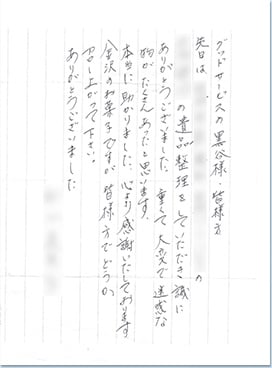 グッドサービスの黒谷様・皆様方
先日は
の
の遺品整理をしていただき誠に
ありがとうございました。重くて大変で迷惑な
物がたくさんあったと思います。
本当に助かりました。心より感謝いたしております
金沢の和菓子ですが皆様方でどうか
召し上がって下さい。
ありがとうございました